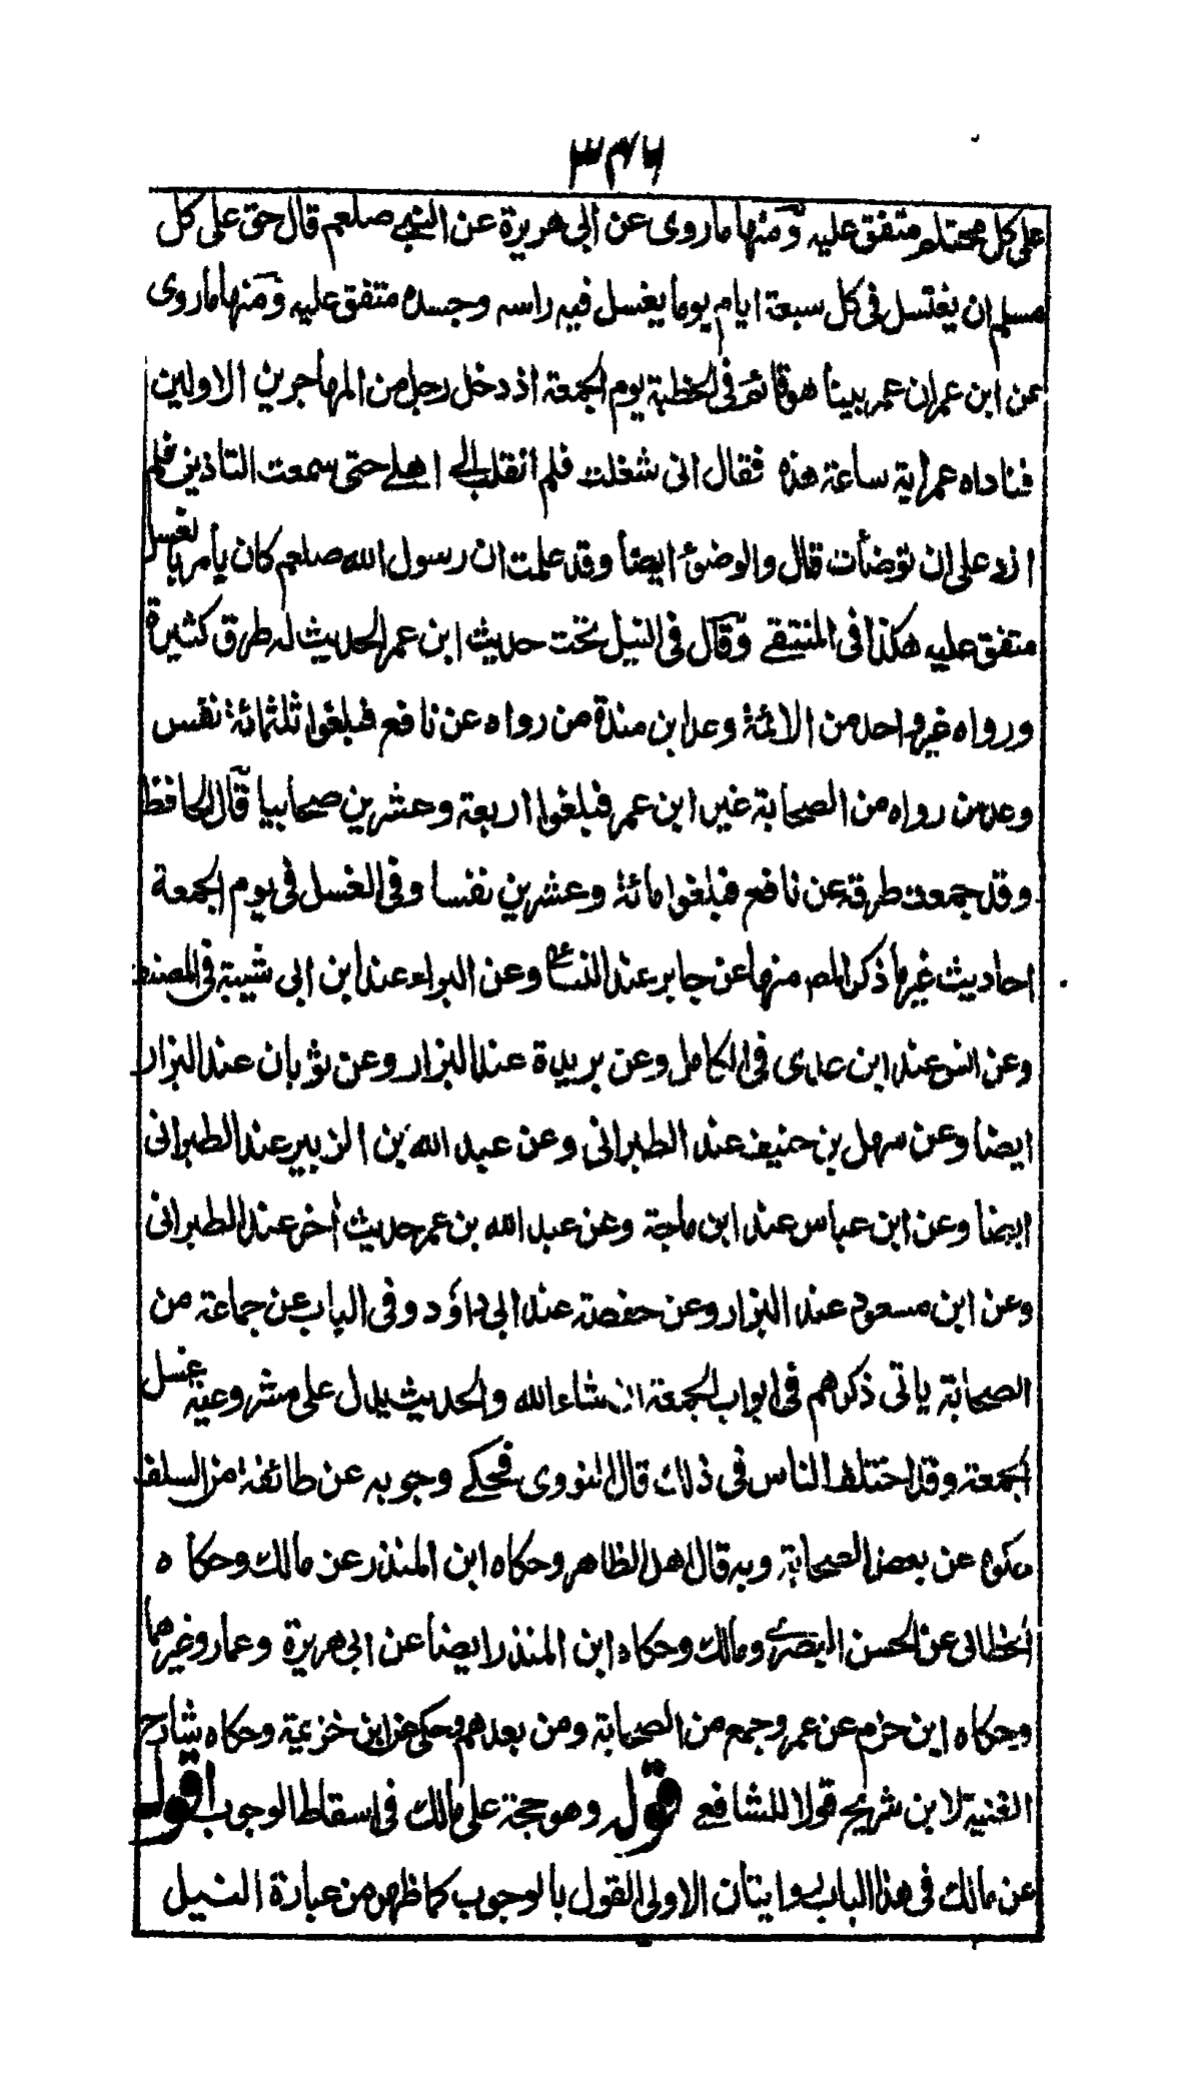 ٣٤٦
على كل محتلم متفق عليه ومنها ما روى عن ابي هريرة عن النبي صلعم قال حق على كل
مسلم ان يغتسل في كل سبعة ايام يوما يغسل فيه راسه وجسده متفق عليه ومنها ما روى
عن ابن عمر ان عمر بينا هو قائم في الخطبة يوم الجمعة اذ دخل رجل من المهاجرين الاولين
فناداه عمر اية ساعة هذه فقال انى شغلت فلم انقلب الى اهلى حتى سمعت التاذين فلم
ازد على ان توضأت قال والوضوء ايضا وقد علمت ان رسول الله صلعم كان يأمر بالغسل
متفق عليه هكذا في المنتقى وقال في النيل تحت حديث ابن عمر الحديث له طرق كثيرة
ورواه غير واحد من الائمة وعد ابن مندة من رواه عن نافع فبلغوا ثلثمائة نفس
وعد من رواه من الصحابة غير ابن عمر فبلغوا اربعة وعشرين صحابيا قال الحافظ
وقد جمعت طرقه عن نافع فبلغوا مائة وعشرين نفسا وفي الغسل في يوم الجمعة
احاديث غير ما ذكر المص منها عن جابر عند النسائى وعن البراء عند ابن ابى شيبة في المصنف
وعن انس عند ابن عدى في الكامل وعن بريدة عند البزار وعن ثوبان عند البزار
ايضا وعن سهل بن حنيف عند الطبرانى وعن عبد الله بن الزبير عند الطبرانى
ايضا وعن ابن عباس عند ابن ماجة وعن عبد الله بن عمر حديث أخر عند الطبرانى
وعن ابن مسعود عند البزار وعن حفصة عند ابى داؤد وفى الباب عن جماعة من
الصحابة ياتى ذكرهم في ابواب الجمعة ان شاء الله والحديث يدل على مشروعية غسل
الجمعة وقد اختلف الناس في ذلك قال النووى فحكى وجوبه عن طائفة من السلف
حكوه عن بعض الصحابة وبه قال اهل الظاهر وحكاه ابن المنذر عن مالك وحكاه
الخطابى عن الحسن البصرى ومالك وحكاه ابن المنذر ايضا عن ابى هريرة وعمار وغيرهما
وحكاه ابن حزم عن عمر وجمع من الصحابة ومن بعدهم وحكى عن ابن خزيمة وحكاه شارح
الغنية لابن شريح قولا للشافعى قوله وهو حجة على مالك في اسقاط الوجوب اقول
عن مالك في هذا الباب روايتان الاولى القول بالوجوب كما ظهر من عبارة النيل